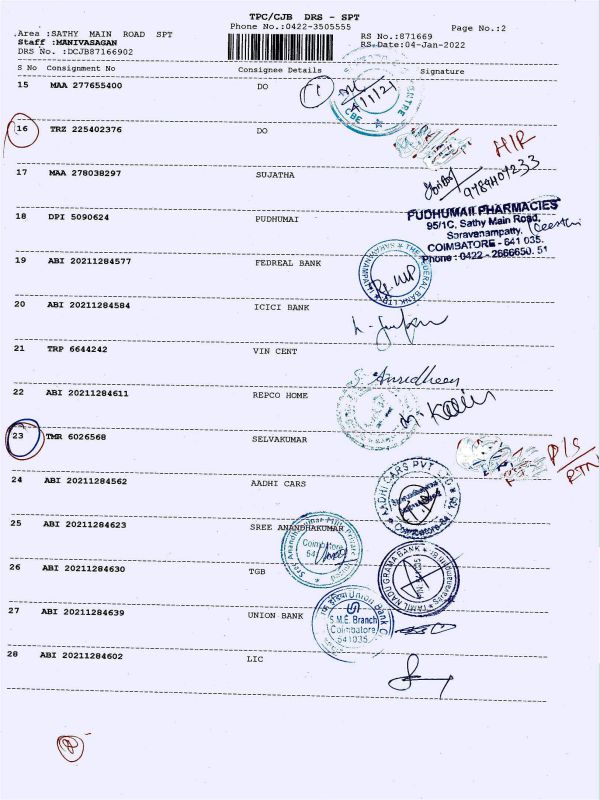 TPC/CJB DRS - SPT
Area :SATHY MAIN ROAD SPT
Phone No.:0422-3505555
Page No.:2
Staff :MANIVASAGAN
RS No.:871669
DRS No. :DCJB87166902
RS Date:04-Jan-2022
S No Consignment No Consignee Details Signature
15 MAA 277655400 DO
4/1/21
CENTRE
CBE
16 TRZ 225402376 DO
HIR
17 MAA 278038297 SUJATHA
9789407233
18 DPI 5090624 PUDHUMAI
PUDHUMAI PHARMACIES
95/1C, Sathy Main Road,
Saravanampatty.
COIMBATORE - 641 035.
Phone : 0422 - 2666650. 51
19 ABI 20211284577 FEDREAL BANK
THE FEDERAL BANK LTD
SARAVANAMPATTY
20 ABI 20211284584 ICICI BANK
21 TRP 6644242 VIN CENT
22 ABI 20211284611 REPCO HOME
23 TMR 6026568 SELVAKUMAR
P/S
RTN
24 ABI 20211284562 AADHI CARS
AADHI CARS PVT. LTD.
Coimbatore-
25 ABI 20211284623 SREE ANANDHAKUMAR
Coimbatore
26 ABI 20211284630 TGB
TAMIL NADU GRAMA BANK
27 ABI 20211284639 UNION BANK
Union Bank
S.M.E. Branch
Coimbatore
641035
28 ABI 20211284602 LIC